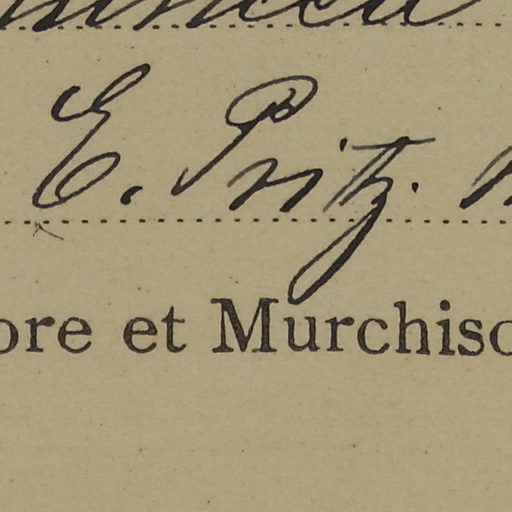 E. Pritz.
ore et Murchiso